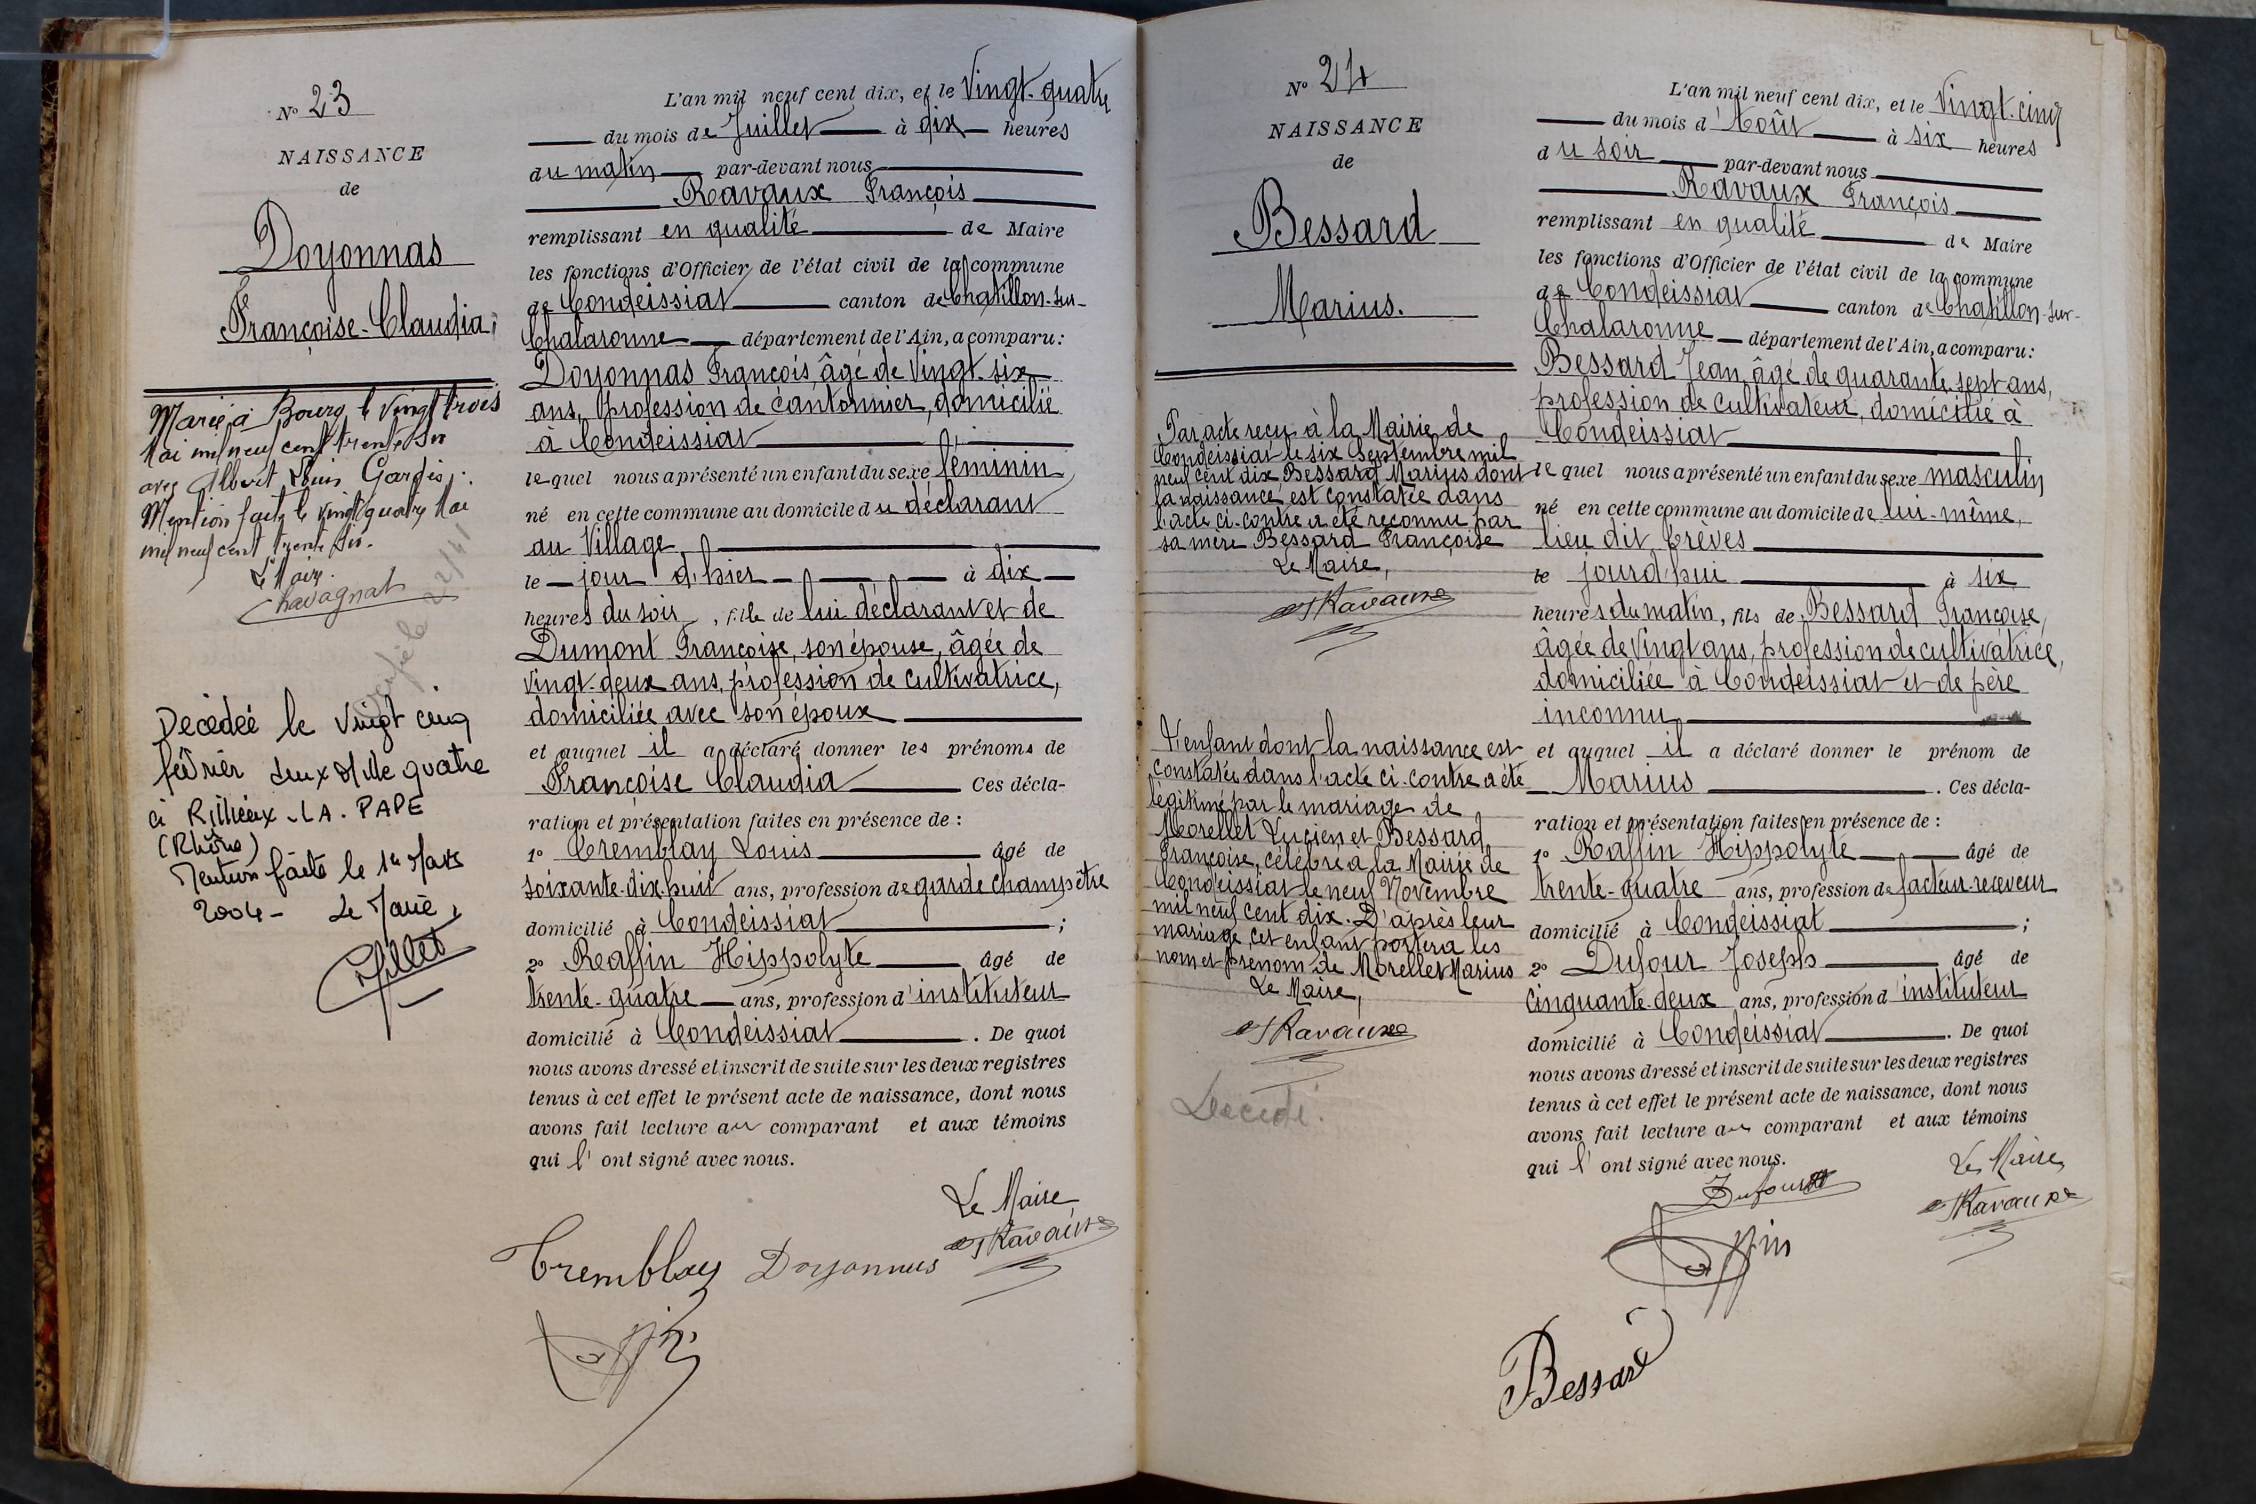 N° 23
NAISSANCE
de
Doyonnas
Françoise-Claudia
Marié à Bourg le vingt trois
Mai mil neuf cent trente six
avec Albert Louis
Mention faite le vingt quatre Mai
mil neuf cent trente six.
Le Maire.
Chavagnat
Décédée le vingt cinq
février deux Mille quatre
à Rillieux-LA-PAPE
(Rhône)
Mention faite le 1er Mars
2004- Le Maire,
L'an mil neuf cent dix, et le Vingt-quatre
du mois de Juillet à dix heures
du matin par-devant nous
Ravaux François
remplissant en qualité de Maire
les fonctions d'Officier de l'état civil de la commune
de Condeissiat canton de Chatillon-sur-
Chalaronne département de l'Ain, a comparu:
Doyonnas François, âgé de Vingt-six
ans, profession de cantonnier, domicilié
à Condeissiat
lequel nous a présenté un enfant du sexe féminin
né en cette commune au domicile du déclarant
au Village
le jour d'hier à dix
heures du soir, fille de lui déclarant et de
Dumont Françoise, son épouse, âgée de
vingt-deux ans, profession de cultivatrice,
domiciliée avec son époux
et auquel il a déclaré donner les prénoms de
Françoise Claudia Ces décla-
ration et présentation faites en présence de :
1° Tremblay Louis âgé de
soixante-dix-huit ans, profession de garde champêtre
domicilié à Condeissiat ;
2° Raffin Hippolyte âgé de
trente-quatre ans, profession d'instituteur
domicilié à Condeissiat. De quoi
nous avons dressé et inscrit de suite sur les deux registres
tenus à cet effet le présent acte de naissance, dont nous
avons fait lecture au comparant et aux témoins
qui l'ont signé avec nous.
Le Maire
Tremblay Doyonnas Ravaux
N° 24
NAISSANCE
de
Bessard
Marius.
Par acte reçu à la Mairie de
Condeissiat le six Septembre mil
neuf cent dix, Bessard Marius dont
la naissance est constatée dans
l'acte ci-contre a été reconnu par
sa mère Bessard Françoise
Le Maire,
Ravaux
L'enfant dont la naissance est
constatée dans l'acte ci-contre a été
légitimé par le mariage de
Morellet Lucien et Bessard
Françoise, célébré à la Mairie de
Condeissiat le neuf Novembre
mil neuf cent dix. D'après leur
mariage, cet enfant portera les
nom et prénom de Morellet Marius
Le Maire,
Ravaux
Décédé.
L'an mil neuf cent dix, et le Vingt-cinq
du mois d'Août à six heures
du soir par-devant nous
Ravaux François
remplissant en qualité de Maire
les fonctions d'Officier de l'état civil de la commune
de Condeissiat canton de Chatillon-sur-
Chalaronne département de l'Ain, a comparu:
Bessard Jean, âgé de quarante-sept ans,
profession de cultivateur, domicilié à
Condeissiat
lequel nous a présenté un enfant du sexe masculin
né en cette commune au domicile de lui-même,
lieu dit Crèves
le jourd'hui à six
heures du matin, fils de Bessard Françoise,
âgée de Vingt ans, profession de cultivatrice,
domiciliée à Condeissiat et de père
inconnu
et auquel il a déclaré donner le prénom de
Marius. Ces décla-
ration et présentation faites en présence de :
1° Raffin Hippolyte âgé de
trente-quatre ans, profession de facteur-receveur
domicilié à Condeissiat ;
2° Dufour Joseph âgé de
cinquante-deux ans, profession d'instituteur
domicilié à Condeissiat. De quoi
nous avons dressé et inscrit de suite sur les deux registres
tenus à cet effet le présent acte de naissance, dont nous
avons fait lecture au comparant et aux témoins
qui l'ont signé avec nous.
Le Maire
Dufour
Ravaux
Bessard